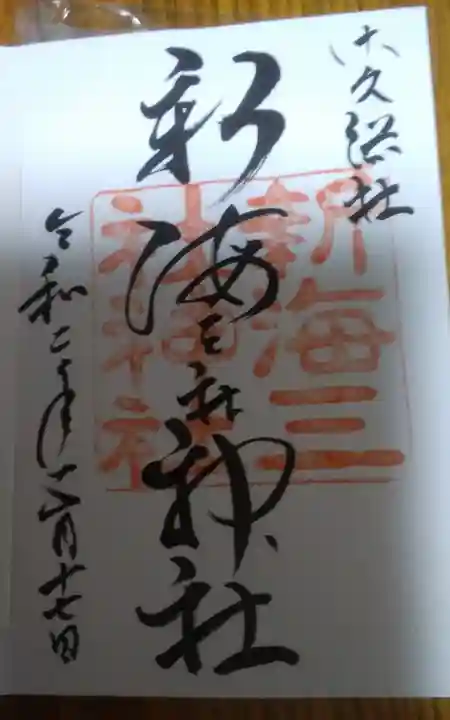 佐久総社
新海三社神社
令和二年十一月十七日
新海三
社神社